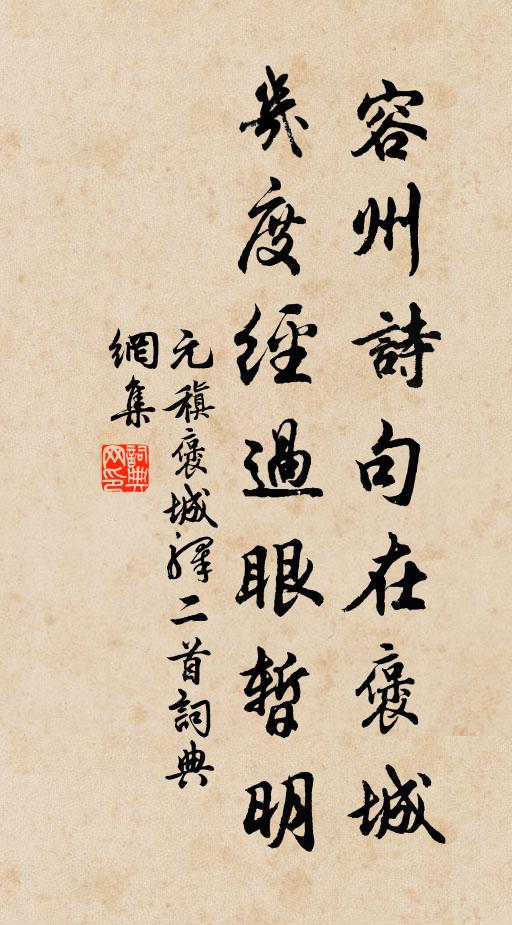 容州詩句在褒城
幾度經過眼暫明
元稹褒城驛二首詞典
網集
詞典
网印